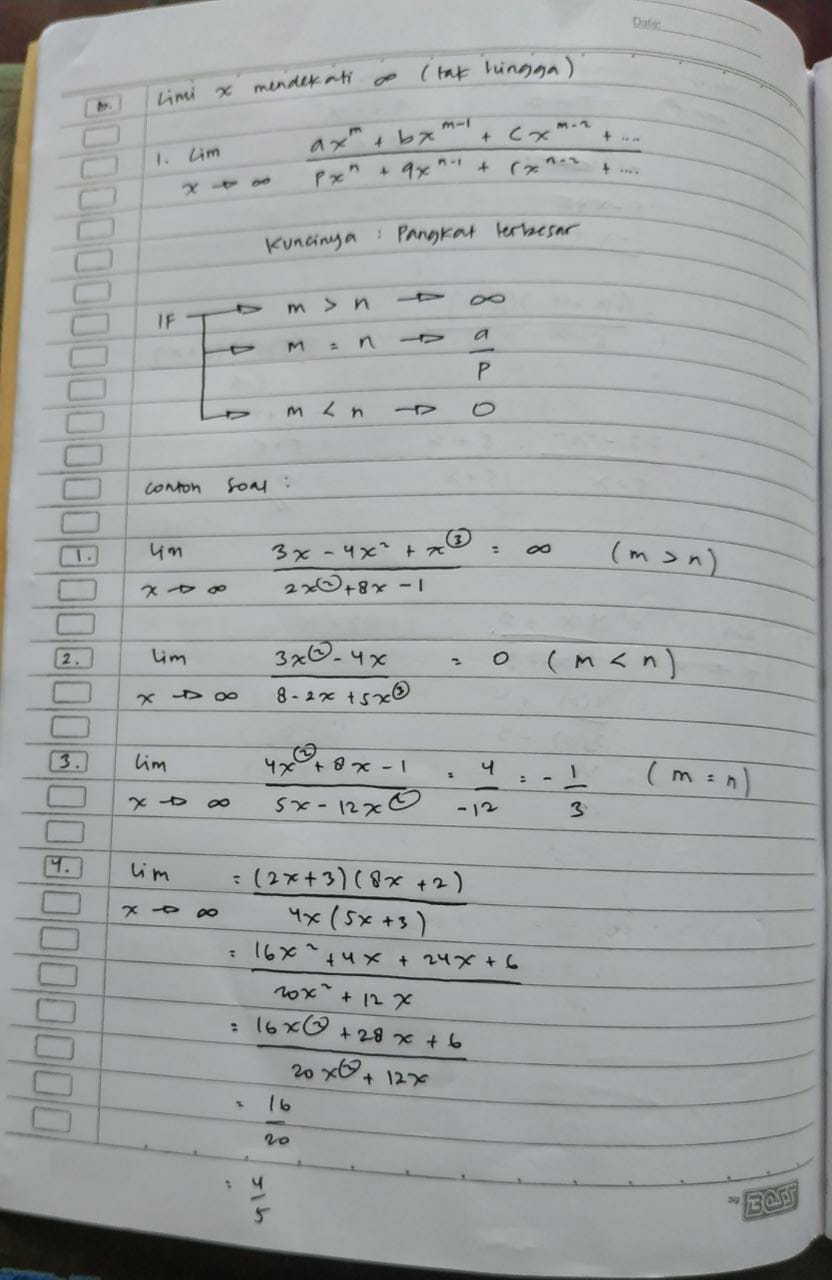 Date:
b. Limi x mendekati ∞ (tak hingga)
1. Lim x → ∞ (ax^m + bx^(m-1) + cx^(m-2) + ....) / (px^n + qx^(n-1) + rx^(n-2) + ....)
Kuncinya : Pangkat terbesar
IF → m > n → ∞
→ m = n → a/p
→ m < n → 0
contoh soal :
1. Lim x → ∞ (3x - 4x² + x³) / (2x² + 8x - 1) = ∞ (m > n)
2. Lim x → ∞ (3x² - 4x) / (8 - 2x + 5x³) = 0 (m < n)
3. Lim x → ∞ (4x² + 8x - 1) / (5x - 12x²) = 4/-12 = -1/3 (m = n)
4. Lim x → ∞ = (2x+3)(8x+2) / 4x(5x+3)
= (16x² + 4x + 24x + 6) / (20x² + 12x)
= (16x² + 28x + 6) / (20x² + 12x)
= 16/20
= 4/5
BOSS